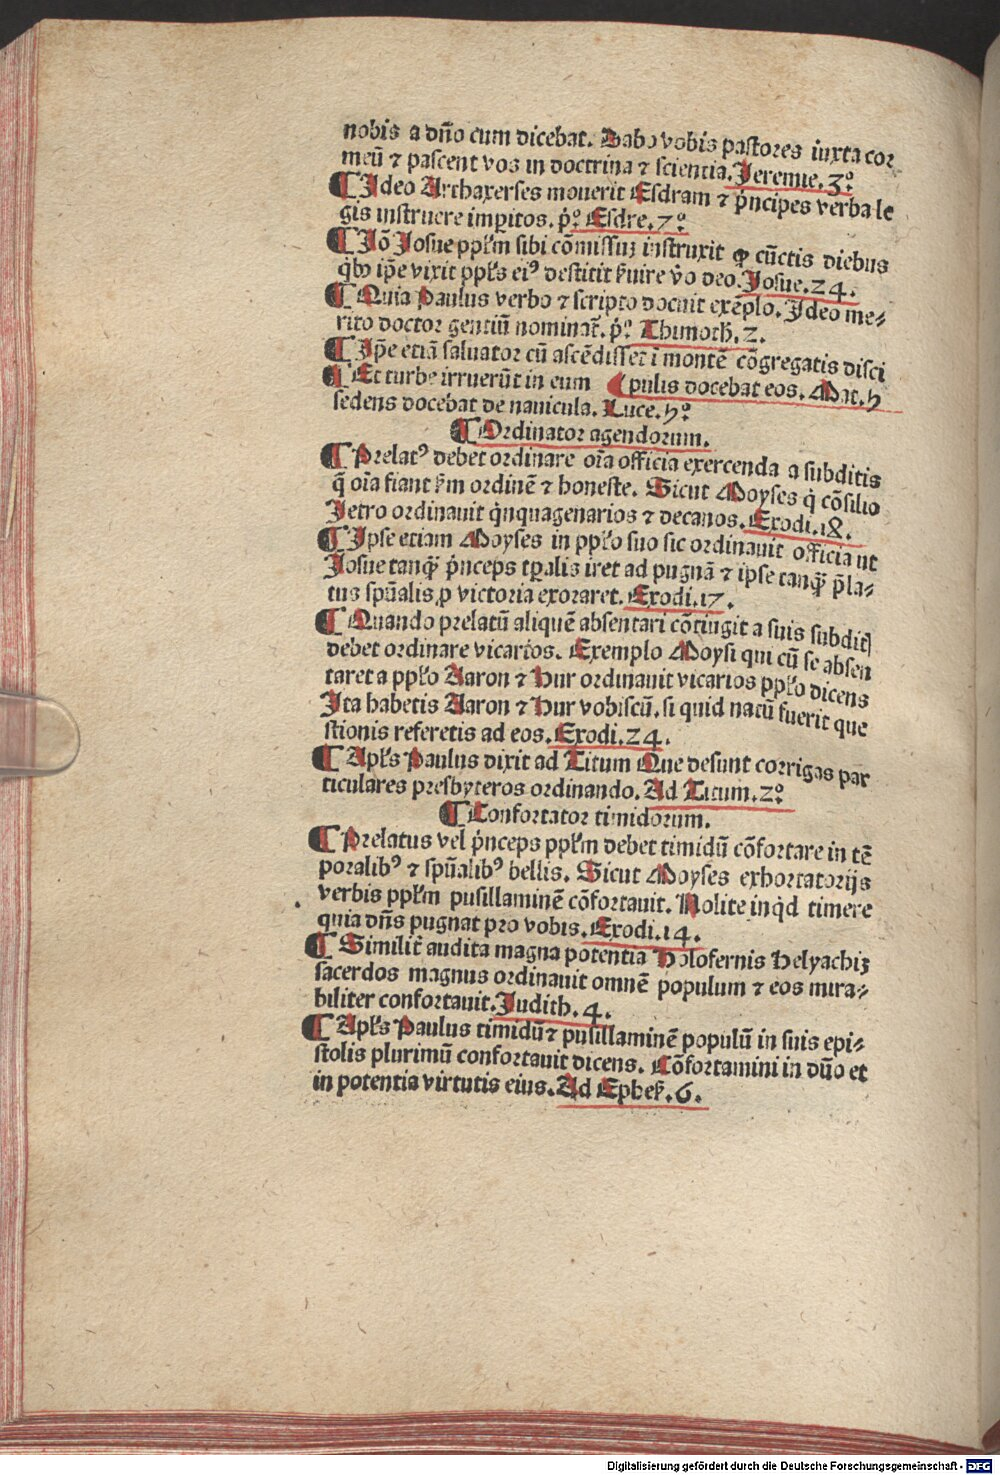 nobis a dño cum dicebat. Dabo vobis pastores iuxta cor
meũ ⁊ pascent vos in doctrina ⁊ scientia. Jeremie. 3°
¶ Ideo Arthaxerses mouerit Esdram ⁊ p̃ncipes verba le
gis instruere impitos. p̊. Esdre. 7°
¶ Iõ Josue pplm̃ sibi cõmissuꝫ instruxit ꝙ cũctis diebus
q̇bꝰ ip̃e vixit ppl̃s eiꝰ destitit ẜuire ṽo deo. Josue. 24.
¶ Quia Paulus verbo ⁊ scripto docuit exẽplo. Ideo me⸗
rito doctor gentiũ nominat᷑. p̊. Thimoth̃. 2.
¶ Ip̃e etiã saluator cũ ascẽdisset ĩ montẽ cõgregatis disci
¶ Et turbe irruerũt in eum ( pulis docebat eos. Mat. 5
sedens docebat de nauicula. Luce. 5°
¶ Ordinator agendorum.
¶ Prelatꝰ debet ordinare oĩa officia exercenda a subditis
q̃ oĩa fiant ẜm ordinẽ ⁊ honeste. Sicut Moyses q̇ cõsilio
Jetro ordinauit q̇nquagenarios ⁊ decanos. Exodi. 18.
¶ Ipse etiam Moyses in pplo̵ suo sic ordinauit officia ut
Josue tanq̃ p̃nceps tp̱alis iret ad pugnã ⁊ ipse tanq̃ p̃la⸗
tus spũalis ꝓ victoria exoraret. Exodi. 17.
¶ Quando prelatũ aliquẽ absentari cõtingit a suis subditꝭ
debet ordinare vicarios. Exemplo Moysi qui cũ se absen
taret a pplo̵ Aaron ⁊ Hur ordinauit vicarios pplo̵ dicens
Ita habetis Aaron ⁊ Hur vobiscũ. si quid natũ fuerit que
stionis referetis ad eos. Exodi. 24.
¶ Apl̃s Paulus dixit ad Titum Que desunt corrigas par
ticulares presbyteros ordinando. Ad Titum. 2°
¶ Confortator timidorum.
¶ Prelatus vel p̃nceps pplm̃ debet timidũ cõfortare in tẽ
poralibꝰ ⁊ spũalibꝰ bellis. Sicut Moyses exhortatorijs
verbis pplm̃ pusillaminẽ cõfortauit. Nolite inq̇d timere
quia dñs pugnat pro vobis. Exodi. 14.
¶ Similit̃ audita magna potentia Holofernis Helyachiꝫ
sacerdos magnus ordinauit omnẽ populum ⁊ eos mira⸗
biliter confortauit. Judith. 4.
¶ Apl̃s Paulus timidũ ⁊ pusillaminẽ populũ in suis epi⸗
stolis plurimũ confortauit dicens. Cõfortamini in dño et
in potentia virtutis eius. Ad Epheẜ. 6.
Digitalisierung gefördert durch die Deutsche Forschungsgemeinschaft - DFG